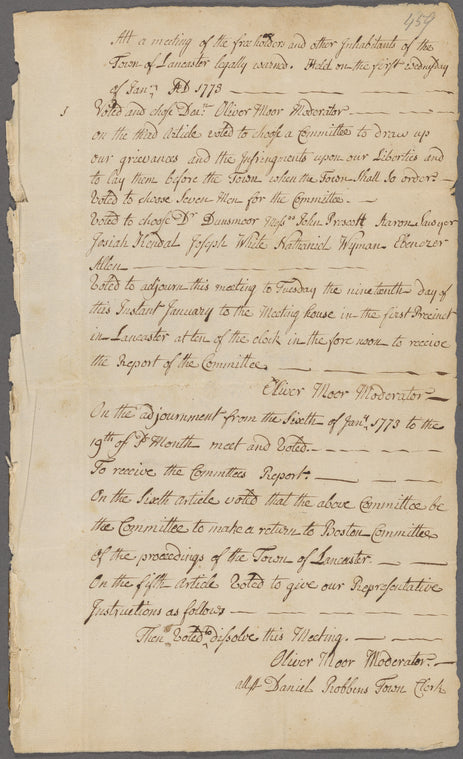 454
Att a meeting of the freeholders and other Inhabitants of the
Town of Lancaster legally warned. Held on the first wednsday
of Jan:y AD 1773
1 Voted and chose Dea:n Oliver Moor Moderator
on the third Article voted to choose a Committee to draw up
our grievances and the Infringments upon our Liberties and
to lay them before the Town when the Town Shall So order
Voted to choose Seven Men for the Committee.
Voted to choose Dr Dunsmoor Mess:rs John Prescott Aaron Sawyer
Josiah Kendal Joseph White Nathaniel Wyman Ebenezer
Allen
Voted to adjourn this meeting to Tuesday the nineteenth day of
this Instant January to the Meeting house in the first Precinct
in Lancaster at ten of the clock in the fore noon to receive
the Report of the Committee
Oliver Moor Moderator
On the adjournment from the Sixth of Jan:y 1773 to the
19th of Do Month meet and Voted.
To receive the Committees Report.
On the Sixth article voted that the above Committee be
the Committee to make a return to Boston Committee
of the proceedings of the Town of Lancaster.
On the fifth article Voted to give our Representative
Instructions as follows
Then Voted to dissolve this Meeting.
Oliver Moor Moderator
attst Daniel Robbins Town Clerk